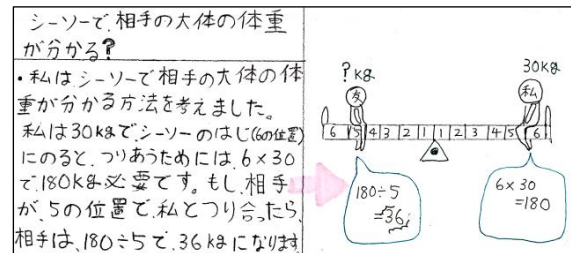 シーソーで、相手の大体の体重
が分かる?
・私はシーソーで相手の大体の体
重が分かる方法を考えました。
私は30kgで、シーソーのはじ(6の位置)
にのると、つりあうためには、6×30
で、180kg必要です。もし、相手
が、5の位置で、私とつり合ったら、
相手は、180÷5で、36kgになります
?kg
友
30kg
私
6 5 4 3 2 1 1 2 3 4 5 6
180÷5
=36
6×30
=180